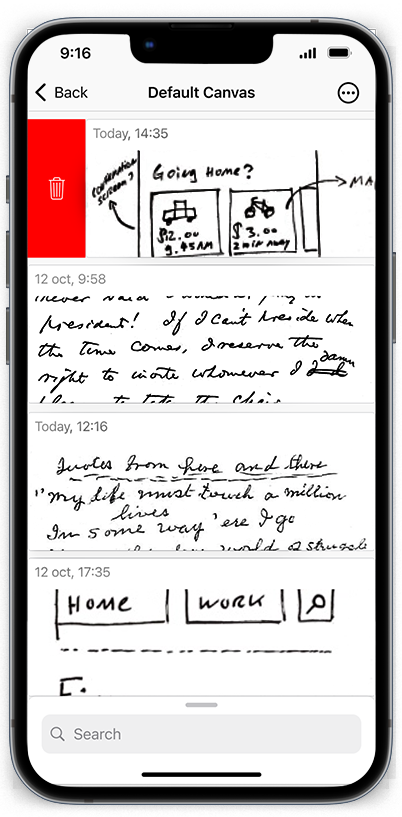 9:16
Back
Default Canvas
Today, 14:35
Confirmation
screen?
Going Home?
MA
$12.00
9.45AM
$3.00
2 min away
12 oct, 9:58
never said
president! If I can't preside when
the time comes, I reserve the
damn
right to invite whomever I
Today, 12:16
Quotes from here and there
"my life must touch a million
lives
Im some way 'ere I go
world of struggle
12 oct, 17:35
HOME
WORK
Search